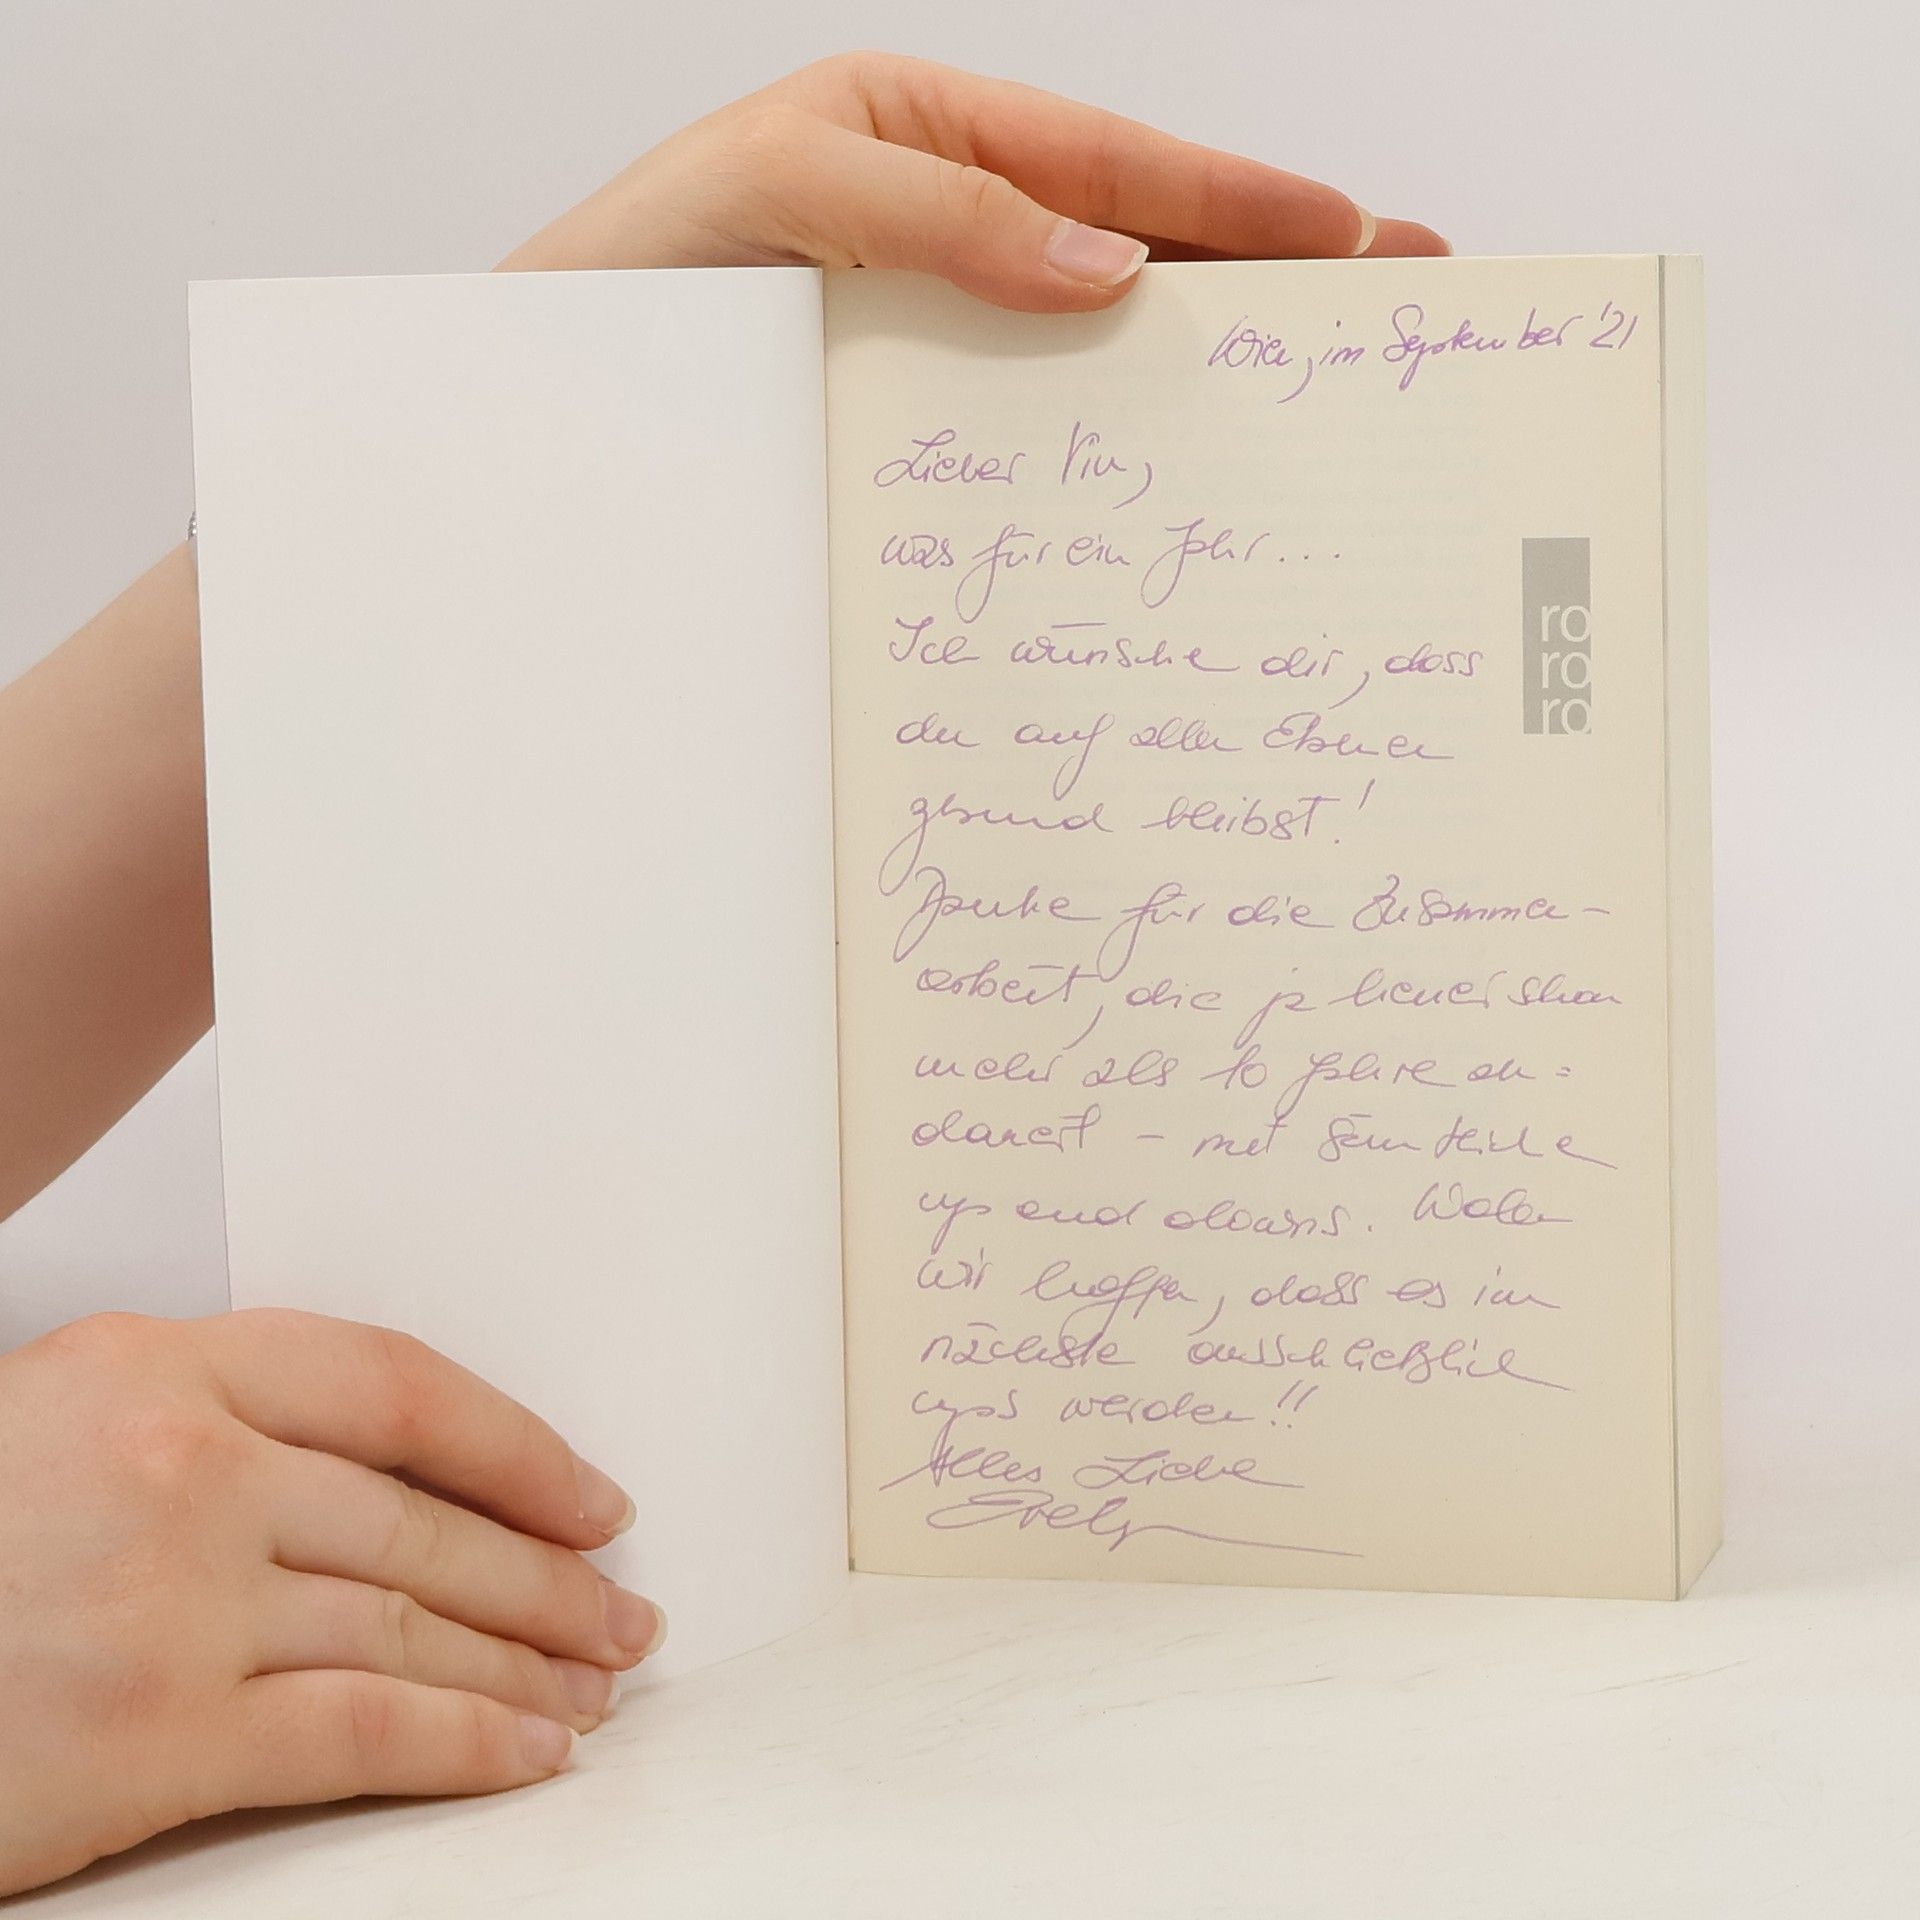 Wien, im September '21
Lieber Vin,
was für ein Jahr...
Ich wünsche dir, dass
du auf allen Ebenen
gesund bleibst!
Danke für die Zusammen-
arbeit, die ja heuer schon
mehr als 10 Jahre an=
dauert - mit sämtliche
up and downs. Wollen
wir hoffen, dass es im
nächste ausschließlich
ups werden!!
Alles Liebe
Evelyn
ro
ro
ro